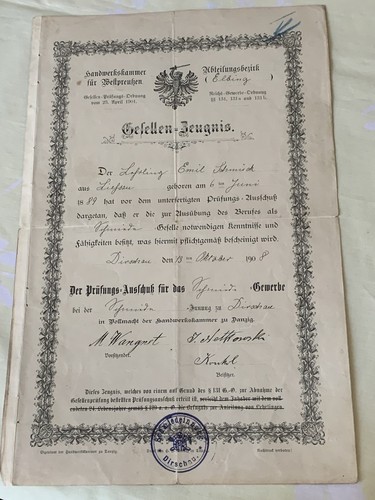 Handwerkskammer
für Westpreußen
Gesellen-Prüfungs-Ordnung
vom 25. April 1901.
Abteilungsbezirk
(Elbing)
Reichs-Gewerbe-Ordnung
§ 131, 131a und 131b.
Gesellen-Zeugnis.
Der Lehrling Emil
aus geboren am 6ten Juni
1889 hat vor dem unterfertigten Prüfungs-Ausschuß
dargetan, daß er die zur Ausübung des Berufes als
Schmiede-Geselle notwendigen Kenntnisse und
Fähigkeiten besitzt, was hiermit pflichtgemäß bescheinigt wird.
Dirschau, den 13ten Oktober 1908
Der Prüfungs-Ausschuß für das Schmiede-Gewerbe
bei der Schmiede-Innung zu Dirschau
in Vollmacht der Handwerkskammer zu Danzig.
Vorsitzender.
Beisitzer.
Dieses Zeugnis, welches von einem auf Grund des § 131 G.-O. zur Abnahme der
Gesellenprüfung befugten Prüfungsausschuß erteilt ist, verleiht dem Inhaber mit dem voll-
endeten 24. Lebensjahre gemäß § 129 a. a. O. die Befugnis zur Anleitung von Lehrlingen.
Dirschau
Eigentum der Handwerkskammer zu Danzig.
Nachdruck verboten!